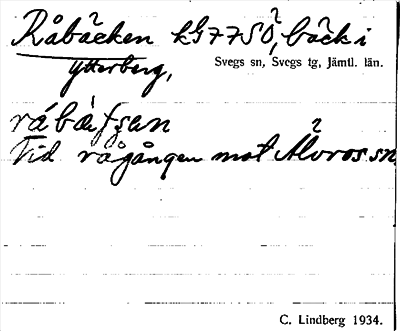 Råbäcken kG77SÖ, bäck i
Ytterberg,
Svegs sn, Svegs tg, Jämtl. län.
Vid rågången mot Älvros sn
C. Lindberg 1934.